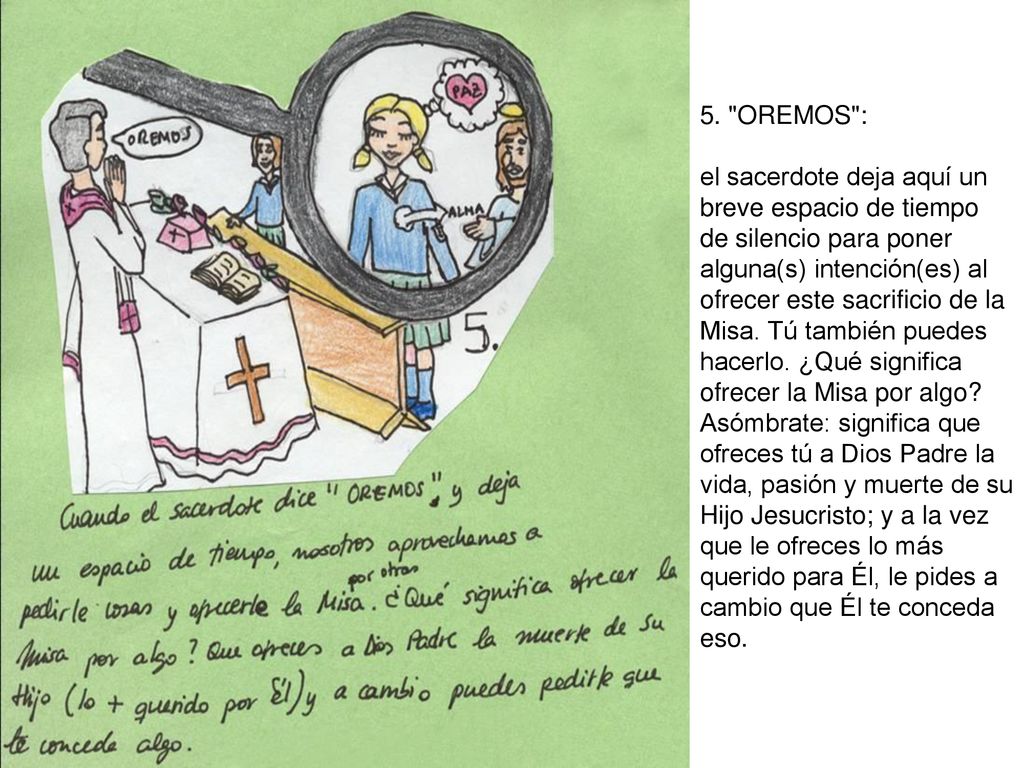 OREMOS
PAZ
ALMA
5.
Cuando el sacerdote dice "OREMOS", y deja
un espacio de tiempo, nosotros aprovechamos a
por otros
pedirle cosas y ofrecerle la Misa. ¿Qué significa ofrecer la
Misa por algo? Que ofreces a Dios Padre la muerte de su
Hijo (lo + querido por Él) y a cambio puedes pedirle que
te conceda algo.
5. "OREMOS":
el sacerdote deja aquí un
breve espacio de tiempo
de silencio para poner
alguna(s) intención(es) al
ofrecer este sacrificio de la
Misa. Tú también puedes
hacerlo. ¿Qué significa
ofrecer la Misa por algo?
Asómbrate: significa que
ofreces tú a Dios Padre la
vida, pasión y muerte de su
Hijo Jesucristo; y a la vez
que le ofreces lo más
querido para Él, le pides a
cambio que Él te conceda
eso.